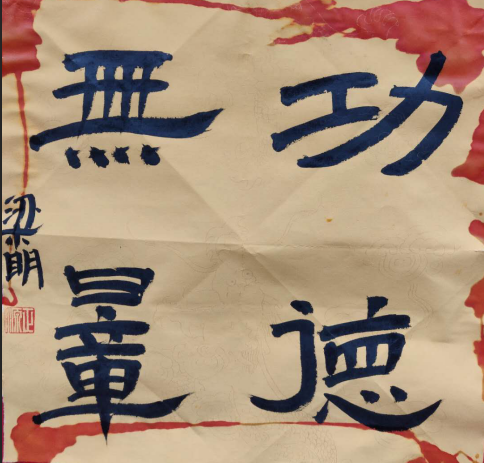 功德
無量
梁